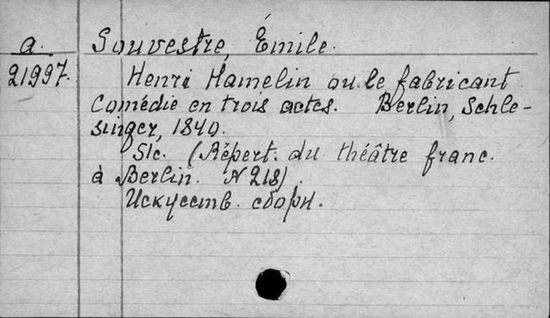 a. Souvestre, Émile.
21997. Henri Hamelin ou le fabricant
Comédie en trois actes. Berlin, Schle-
singer, 1840.
51c. (Répert. du théâtre franc.
à Berlin. N 218)
Искусств. сборн.